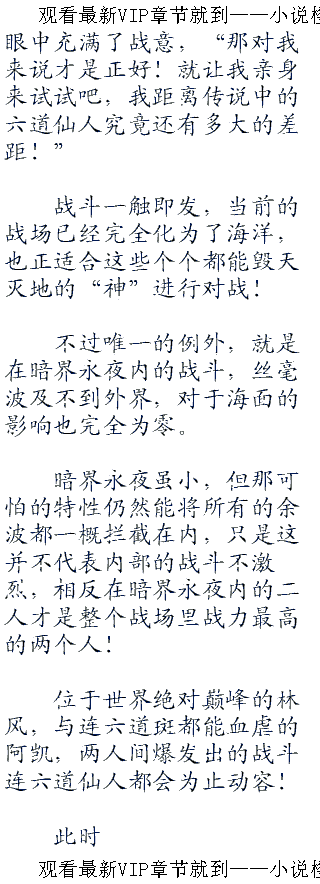 观看最新VIP章节就到——小说
眼中充满了战意，“那对我
来说才是正好！就让我亲身
来试试吧，我距离传说中的
六道仙人究竟还有多大的差
距！”
战斗一触即发，当前的
战场已经完全化为了海洋，
也正适合这些个个都能毁天
灭地的“神”进行对战！
不过唯一的例外，就是
在暗界永夜内的战斗，丝毫
波及不到外界，对于海面的
影响也完全为零。
暗界永夜虽小，但那可
怕的特性仍然能将所有的余
波都一概拦截在内，只是这
并不代表内部的战斗不激
烈，相反在暗界永夜内的二
人才是整个战场里战力最高
的两个人！
位于世界绝对巅峰的林
风，与连六道斑都能血虐的
阿凯，两人间爆发出的战斗
连六道仙人都会为止动容！
此时
观看最新VIP章节就到——小说